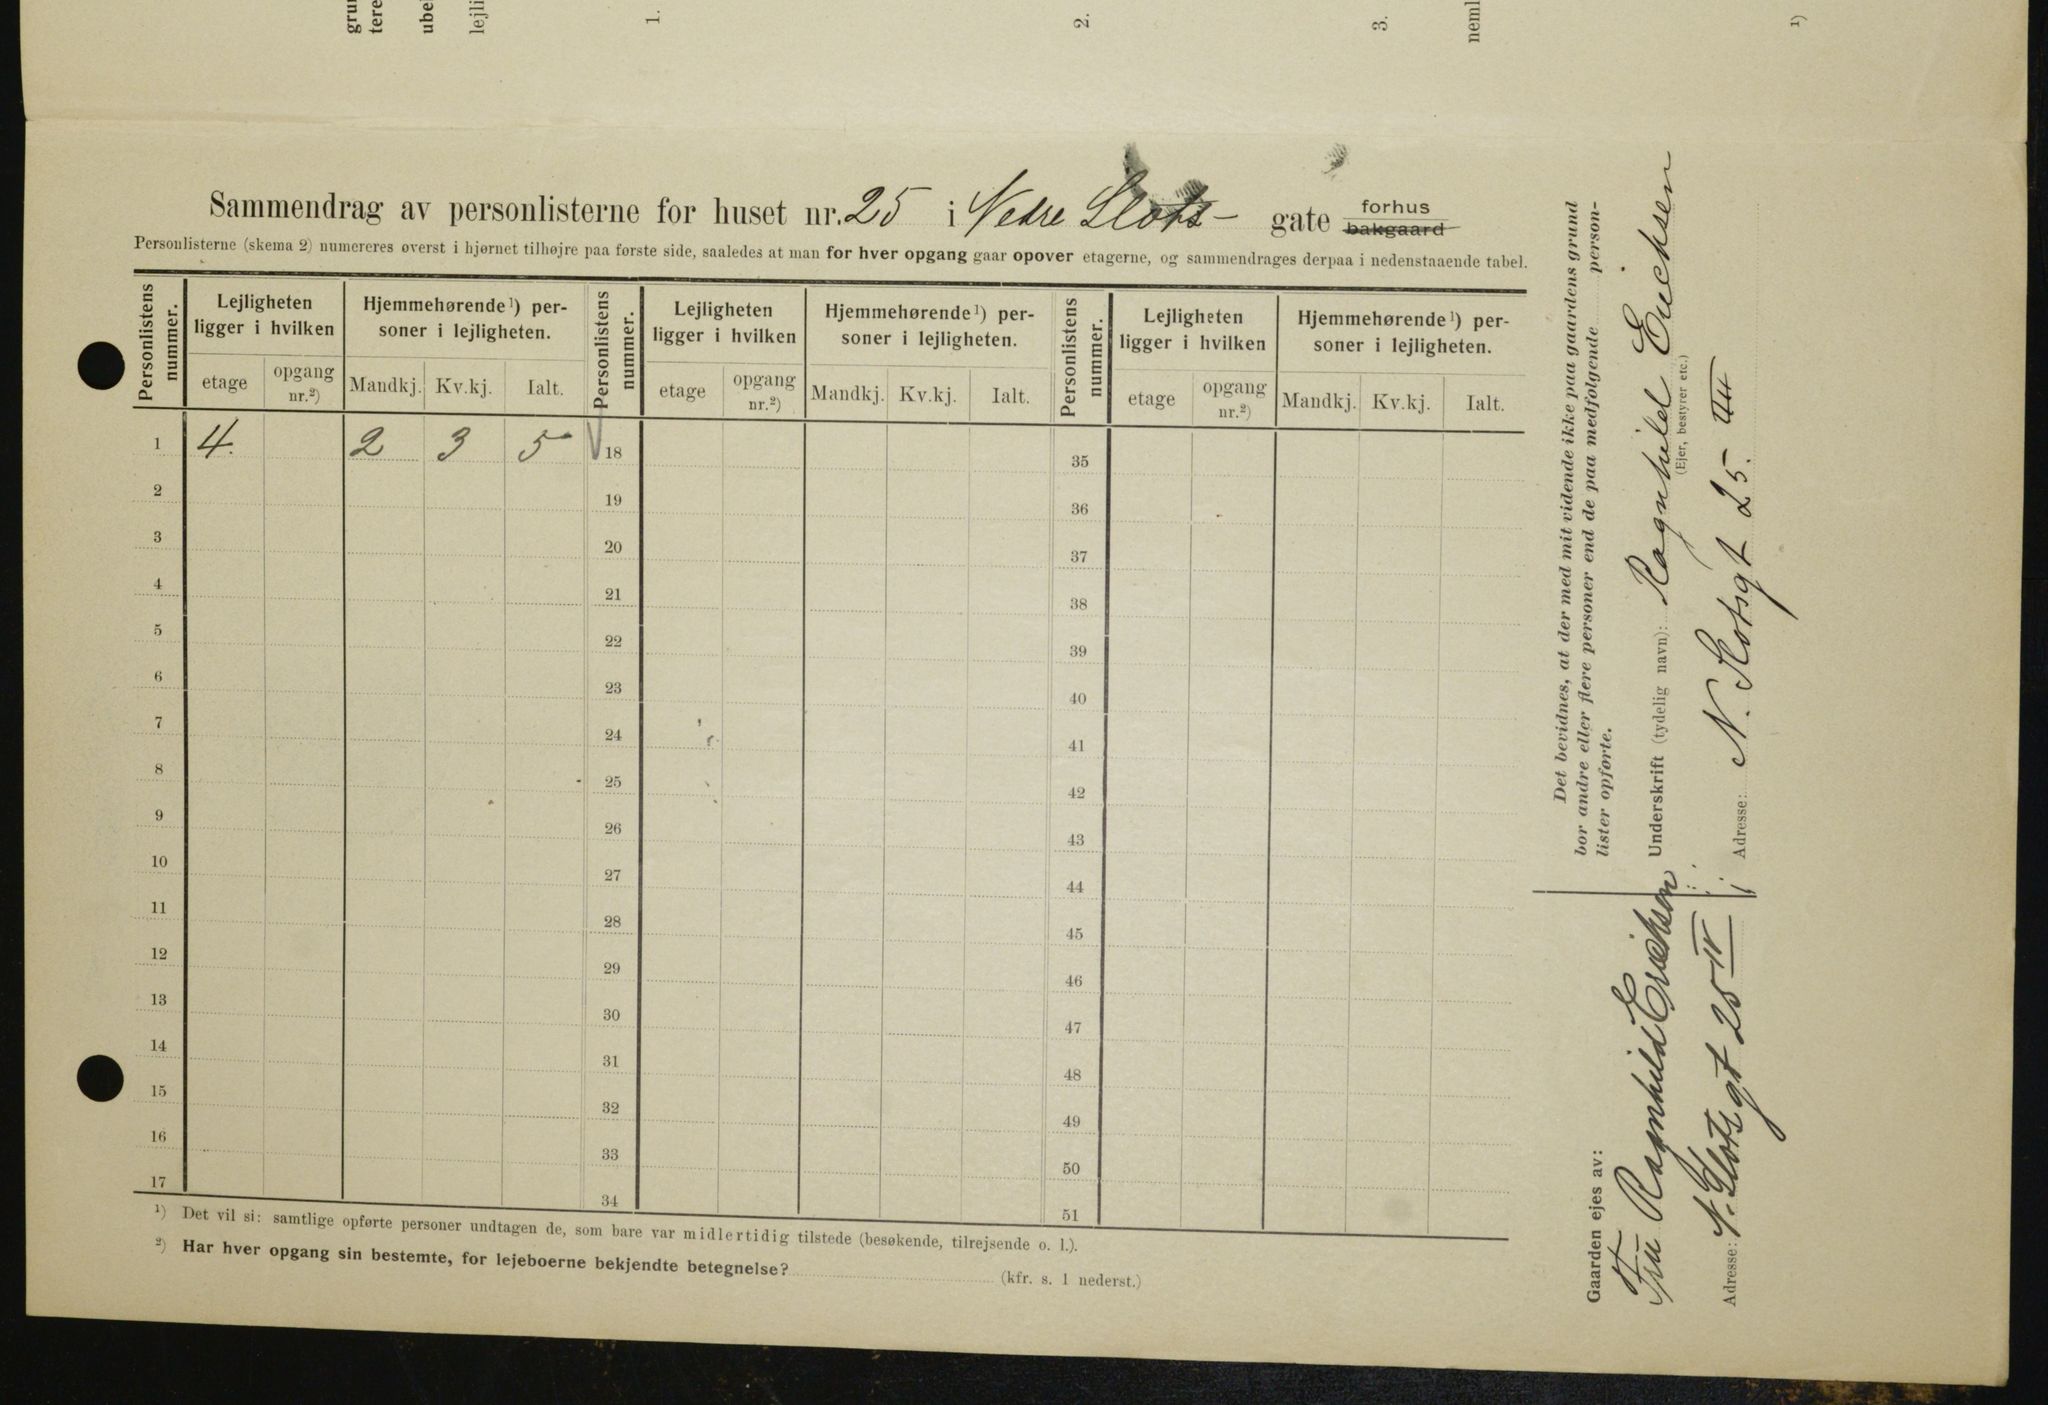 grun
tere
ube
lejli
1.
2.
3.
neml
1)
Sammendrag av personlisterne for huset nr. 25 i Nedre Slots- gate forhus
bakgaard
Personlisterne (skema 2) numereres øverst i hjørnet tilhøjre paa første side, saaledes at man for hver opgang gaar opover etagerne, og sammendrages derpaa i nedenstaaende tabel.
Personlistens nummer.
Lejligheten ligger i hvilken
Hjemmehørende 1) personer i lejligheten.
Personlistens nummer.
Lejligheten ligger i hvilken
Hjemmehørende 1) personer i lejligheten.
Personlistens nummer.
Lejligheten ligger i hvilken
Hjemmehørende 1) personer i lejligheten.
etage opgang nr.2) Mandkj. Kv.kj. Ialt. etage opgang nr.2) Mandkj. Kv.kj. Ialt. etage opgang nr.2) Mandkj. Kv.kj. Ialt.
1 4. 2 3 5 18 35
2 19 36
3 20 37
4 21 38
5 22 39
6 23 40
7 24 41
8 25 42
9 26 43
10 27 44
11 28 45
12 29 46
13 30 47
14 31 48
15 32 49
16 33 50
17 34 51
1) Det vil si: samtlige opførte personer undtagen de, som bare var midlertidig tilstede (besøkende, tilrejsende o. l.).
2) Har hver opgang sin bestemte, for lejeboerne bekjendte betegnelse? (kfr. s. 1 nederst.)
Det bevidnes, at der med mit vidende ikke paa gaardens grund
bor andre eller flere personer end de paa medfølgende person-
lister opførte.
Underskrift (tydelig navn): Ragnhild Erichsen
(Ejer, bestyrer etc.)
Adresse: N. Slotsgt 25. IIII
Gaarden ejes av:
Fru Ragnhild Erichsen
Adresse: N. Slotsgt 25 IV